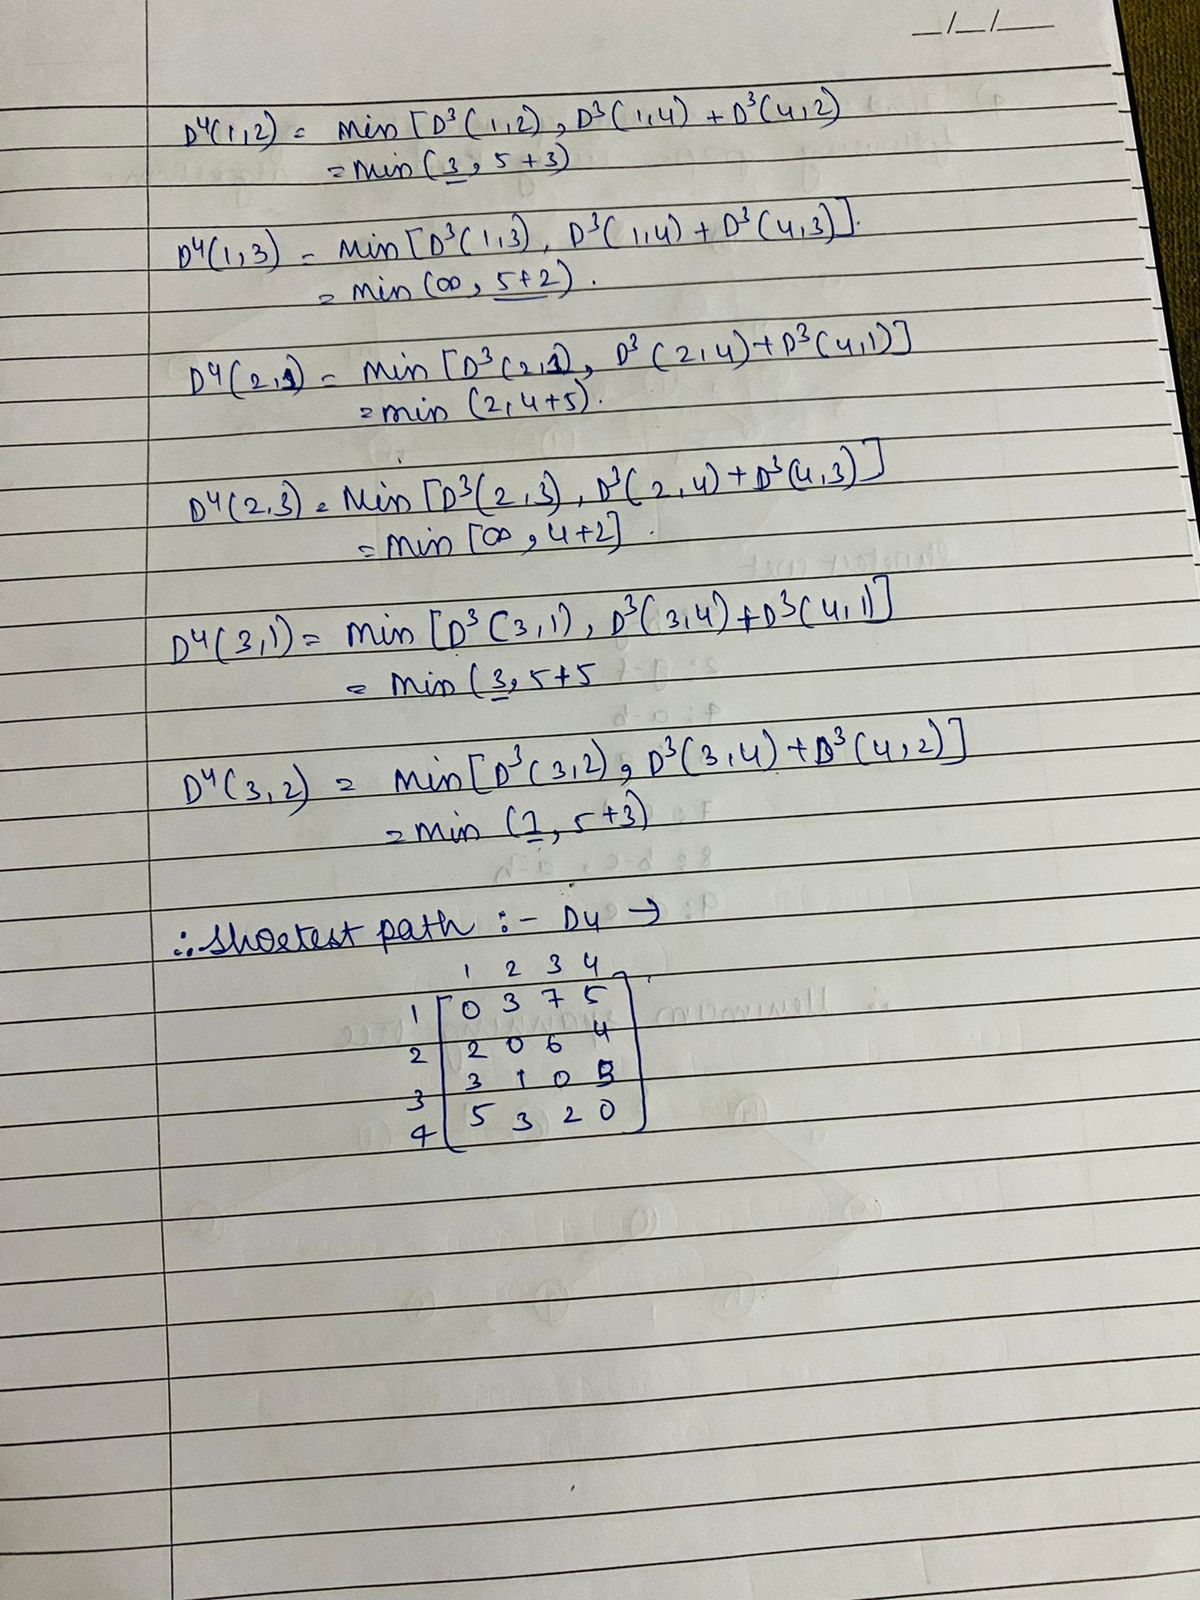 _/_/__
D⁴(1,2) = min [D³(1,2), D³(1,4) + D³(4,2)
= min (3, 5+3)
D⁴(1,3) = min [D³(1,3), D³(1,4) + D³(4,3)].
= min (∞, 5+2).
D⁴(2,1) = min [D³(2,1), D³(2,4) + D³(4,1)]
= min (2, 4+5).
D⁴(2,3) = min [D³(2,3), D³(2,4) + D³(4,3)]
= min [∞, 4+2].
D⁴(3,1) = min [D³(3,1), D³(3,4) + D³(4,1)]
= min (3, 5+5
D⁴(3,2) = min [D³(3,2), D³(3,4) + D³(4,2)]
= min (1, 5+3)
∴ shortest path :- D4 →
1 2 3 4
1 0 3 7 5
2 2 0 6 4
3 3 1 0 5
4 5 3 2 0